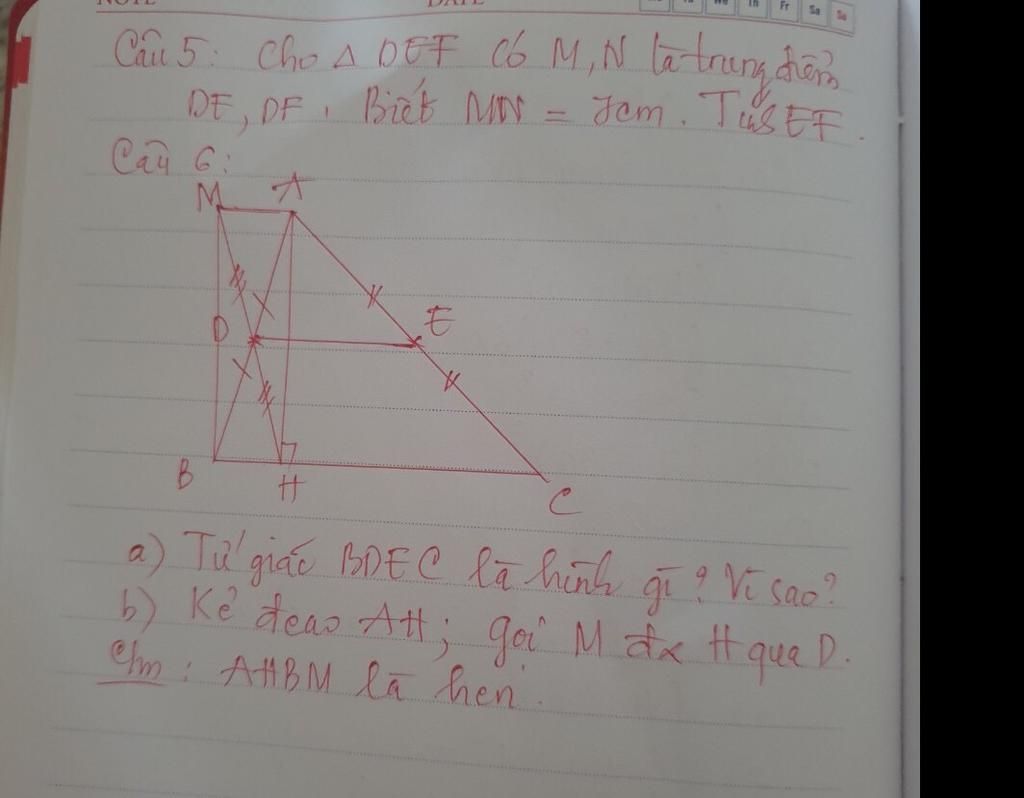 Th Fr Sa Su
Câu 5: Cho Δ DEF có M, N là trung điểm
DE, DF. Biết MN = 7cm. Tính EF.
Câu 6:
M A
D E
B H C
a) Tứ giác BDEC là hình gì? Vì sao?
b) Kẻ đcao AH; gọi M đx H qua D.
C/m: AHBM là hcn.